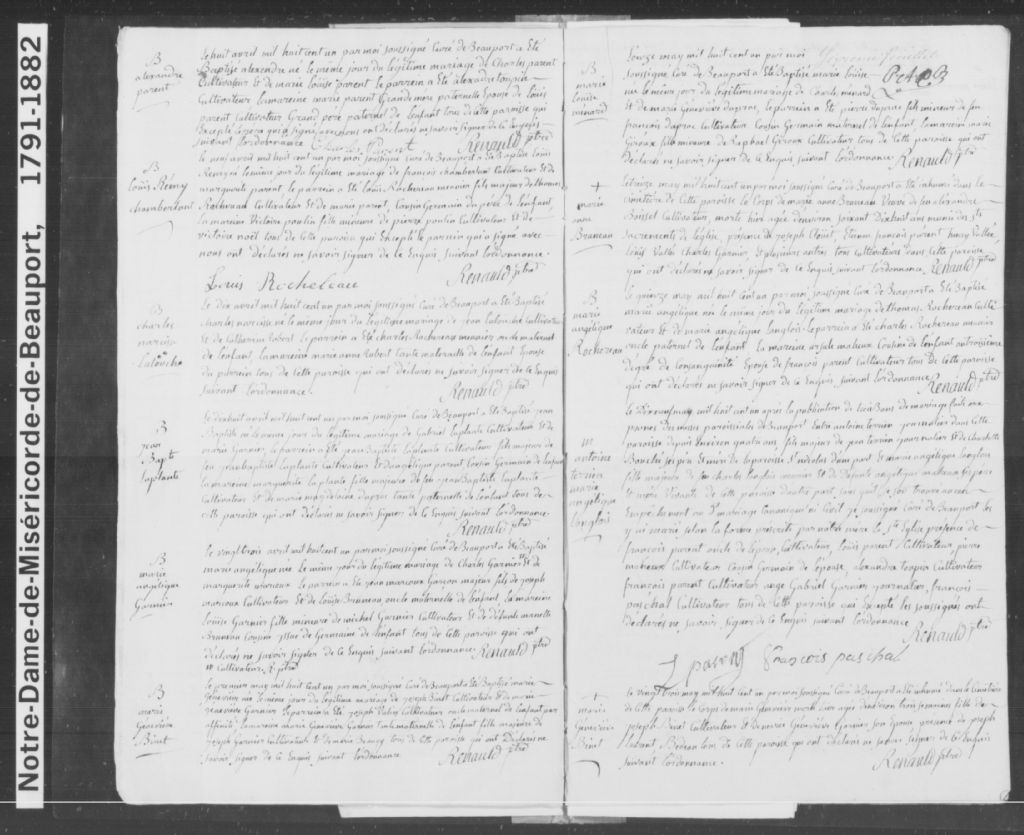 Notre-Dame-de-Miséricorde-de-Beauport, 1791-1882
B
alexandre
parent
Le huit avril mil huit cent un par moi soussigné Curé de Beauport a été
Baptisé alexendre né le même jour du légitime mariage de Charles parent
Cultivateur et de marie Louise parent le parrein a été alexandre
Cultivateur la marreine marie parent Grand mère paternelle Epouse de Louis
parent Cultivateur Grand père paternel de l'enfant tous de cette paroisse qui
suivant l'ordonnance Charles Parent Renauld ptre
B
Louis Rémy
chamberland
Le neuf avril mil huit cent un par moi soussigné Curé de Beauport a été Baptisé Louis
Remy né le même jour du légitime mariage de françois chamberlan Cultivateur et de
marguerite parent le parrein a été Louis Rochereau menuier fils majeur de thomas
Rochereau Cultivateur et de marie parent, Cousin Germain du père de l'enfant,
la mareine Victoire poulin fille mineure de pierre poulin Cultivateur et de
victoire noël tous de cette paroisse qui Excepté le parrein qui a signé avec
nous ont déclarés ne savoir signer de ce Enquis suivant l'ordonnance.
Louis Rocheleau Renauld ptre
B
charles
narcisse
Latouche
Le dix avril mil huit cent un par moi soussigné Curé de Beauport a été Baptisé
charles narcisse né le même jour du légitime mariage de jean latouche Cultivateur
et de Catherine robert le parrein a été charles Rochereau meunier
de l'enfant, la marreine marie anne Robert tante maternelle de l'enfant Epouse
du parrein tous de cette paroisse qui ont déclarés ne savoir signer de ce Enquis
suivant l'ordonnance. Renauld ptre
B
jean
Bapt
laplante
Le dix huit avril mil huit cent un par moi soussigné Curé de Beauport a été Baptisé jean
Baptiste né le même jour du légitime mariage de Gabriel laplante Cultivateur et de
marie Garnier le parrein a été jean Baptiste laplante Cultivateur fils majeur de
feu jean baptiste laplante Cultivateur et d'angélique parent Cousin Germain de l'enfant
la mareine marguerite la plante fille majeure de feu jean Baptiste laplante
Cultivateur et de marie magdelaine dupras tante paternelle de l'enfant tous de
cette paroisse qui ont déclarés ne savoir signer de ce Enquis suivant l'ordonnance
Renauld ptre
B
marie
angelique
Garnier
Le vingt trois avril mil huit cent un par moi soussigné Curé de Beauport a été Baptisé
marie angelique née le même jour du légitime mariage de Charles Garnier et de
marguerite maroux le parrein a été jean maroux Garçon majeur fils de joseph
maroux Cultivateur et de Louise Bruneau oncle maternelle de l'enfant la marreine
Louise Garnier fille mineure de michel Garnier Cultivateur et de défunte
Bruneau Cousine issue de Germaine de l'enfant tous de cette paroisse qui ont
déclarés ne savoir signer de ce Enquis suivant l'ordonnance Renauld ptre
Cultivateur R. ptre
B
marie
Géneviève
Binet
Le premier may mil huit cent un par moi soussigné Curé de Beauport a été Baptisé marie
Geneviève née le même jour du légitime mariage de joseph Binet Cultivateur et de marie
Geneviève Garnier le parrein a été joseph Oncle maternel de l'enfant par
affinité la mareine marie Geneviève Garnier tante maternelle de l'enfant fille majeure de
joseph Garnier Cultivateur et de marie tous de cette paroisse qui ont Déclarés ne
savoir signer de ce Enquis suivant l'ordonnance Renauld ptre
B
marie
Louise
ménard
L'onze may mil huit cent un par moi
soussigné Curé de Beauport a été Baptisé marie louise
née le même jour du légitime mariage de Charles ménard
et de marie Géneviève dupras, le parrein a été pierre duprac fils mineur de feu
françois duprac Cultivateur Cousin Germain maternel de l'enfant, la mareine marie
Giroux fille mineure de Raphael Giroux Cultivateur tous de cette paroisse qui ont
déclarés ne savoir signer de ce Enquis suivant l'ordonnance. Renauld ptre
+
marie
anne
Bruneau
Le treize may mil huit cent un par moi soussigné Curé de Beauport a été inhumé dans le
cimetière de cette paroisse le Corps de marie anne Bruneau Veuve de feu alexandre
Boisset Cultivateur, morte hier agée d'environ soixant Dix huit ans munie des Sts
Sacrements de l'église, présence de joseph Clouet, Etienne françois parent Vallée,
Louis Vallée Charles Garnier, et plusieurs autres tous Cultivateurs dans cette paroisse
qui ont déclarés ne savoir signer de ce Enquis suivant l'ordonnance. Renauld ptre
B
marie
angelique
Rochereau
Le quinze may mil huit cent un par moi soussigné Curé de Beauport a été Baptisé
marie angelique née le même jour du légitime mariage de thomas Rochereau Culti-
vateur et de marie angelique Langlois le parrein a été charles Rochereau menier
oncle paternel de l'enfant la mareine ursule maheux Cousine de l'enfant au troisième
degré de Consanguinité Epouse de françois parent Cultivateur tous De cette paroisse
qui ont déclarés ne savoir signer de ce Enquis suivant l'ordonnance Renauld ptre
m
antoine
terrien
marie
angélique
Langlois
Le may mil huit cent un après la publication de trois Bans de mariage faite aux
prones des messes paroissiales de Beauport Entre antoine terrien journalier dans Cette
paroisse depuis environ quatre ans fils majeur de jean terrien journalier et de Charlotte
Bourbé ses père et mère de la paroisse St nicolas d'une part et marie angelique Langlois
fille majeure de feu charles Langlois meunier et de Défunte angelique maheux ses père
et mère Vivants de cette paroisse d'autre part, sans qu'il se soit trouvé aucun
Empêchement au Mariage Canonique ni Civil je soussigné Curé de Beauport les
y ai mariés selon la forme prescrite par nôtre mère la Ste Eglise présence de
françois parent oncle de l'époux, Cultivateur, Louis parent Cultivateur, pierre
maheux Cultivateur Cousin Germain de l'épouse, alexandre Cultivateur
françois parent Cultivateur ange Gabriel Garnier journalier, françois
paschal Cultivateur tous de Cette paroisse qui Excepté les soussignés ont
déclarés ne savoir signer de ce Enquis suivant l'ordonnance
Renauld ptre
François paschal
+
marie
Geneviève
Binet
Le vingt trois may mil huit cent un par moi soussigné Curé de Beauport a été inhumée dans le Cimitière
de Cette paroisse le Corps de marie Geneviève morte hier agée d'environ trois semaines fille de
joseph Binet Cultivateur et de marie Géneviève Garnier son épouse présence de joseph
Bedeau tous de Cette paroisse qui ont déclarés ne savoir signer de ce Enquis
suivant l'ordonnance. Renauld ptre